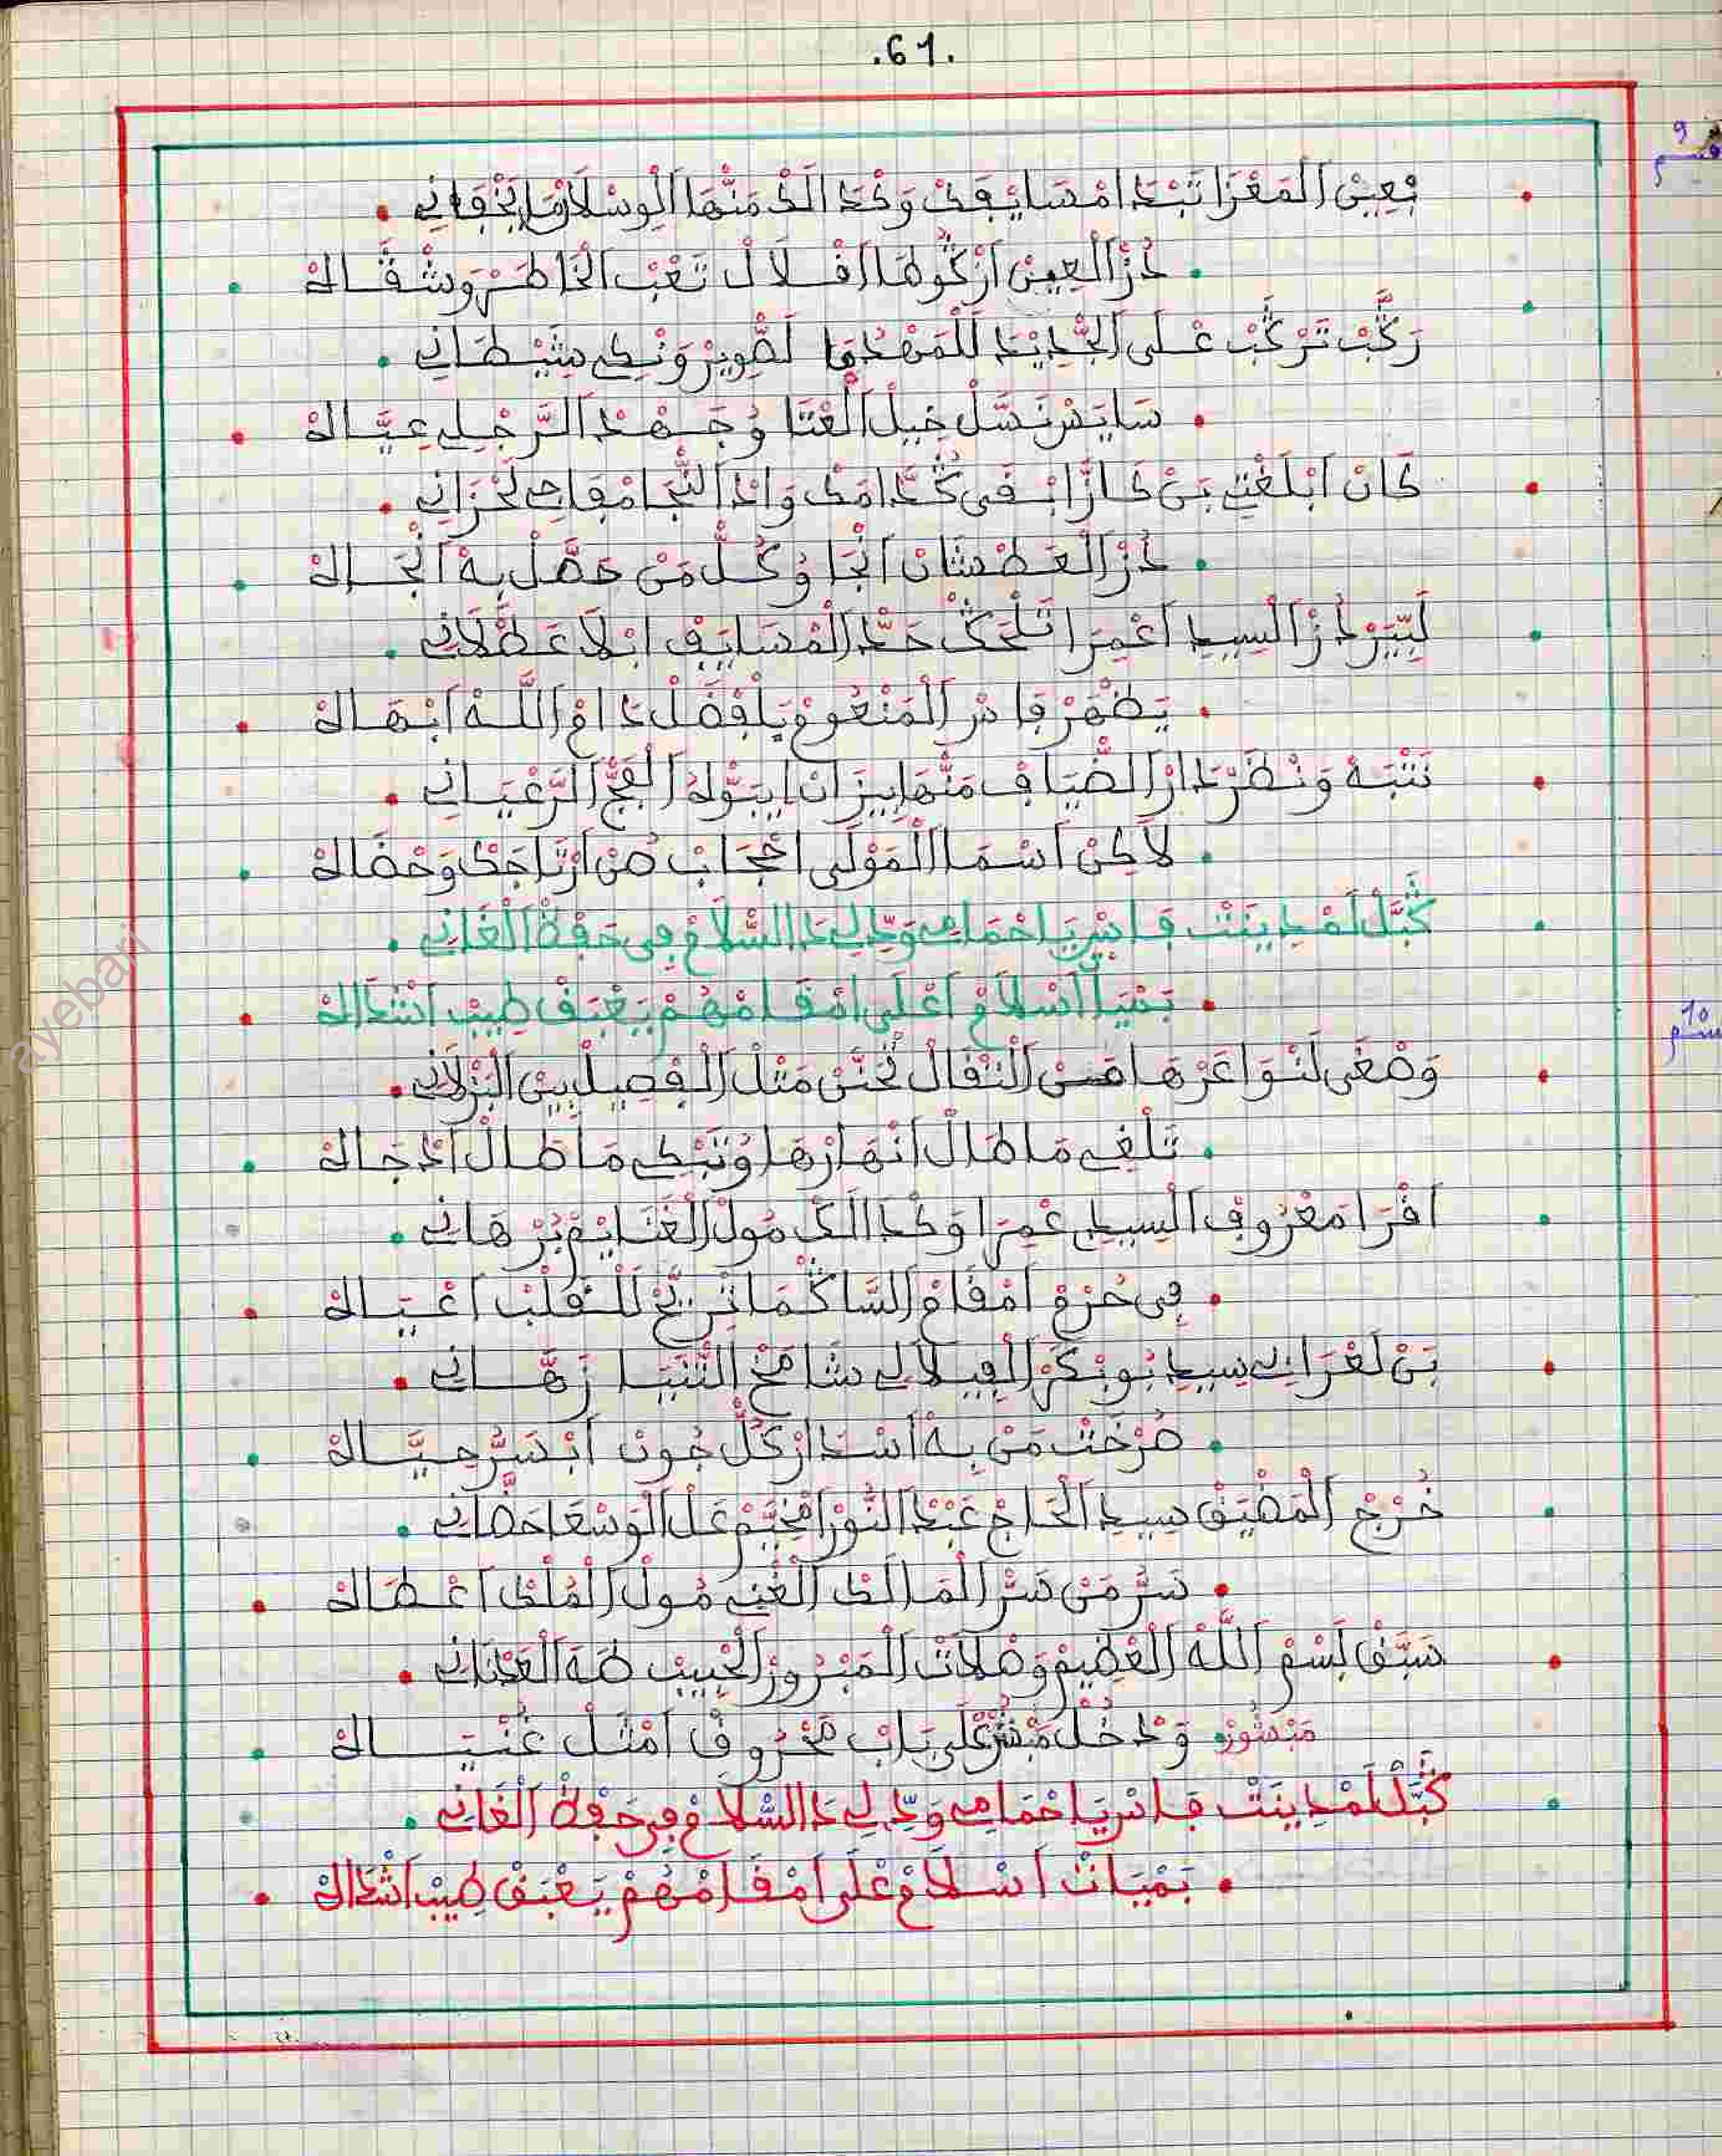 .61.
بعين المغزا تبدا امسايفك وكدالك منها الوسلان
9
قسم
دز العين اركوها افلال تعب الخاطر وشقاله
ركب تركب على الحديد للمهدما لطوير وبكي شيطاني
سايس نسل خيل العتا وجهد الرجلي عياله
كان ابلغتي بن كازا ابقى كدامك واد النجا مفاجي لحزاني
دز العطشان انجا وكل من حصل به انجاله
ليسر دز السيد اعمرا تلحك حد المسايف ابلا عطلاني
يظهر فاس المنعوم بلفضل دام الله ابهاله
نتبه ونظر دار الضياف منها بيزان ايبوله الفج الزغياني
لاكن اسما المولى احجاب صن ارتاجك وحضاله
كبل لمدينت فاس يا احمامي ودي لي دا السلام في حفظ الغاني
بميا اسلام اعلى امقامهم يعبق طيب انشداله
10
قسم
وصغى لنواعرها مسن النقال تحن مثل الفصيل بين البزلاني
تلغي ما طال انهارها وتبكي ما طال ادجاله
اقرا معروف السيدي عمرا وكدالك مول الغنايم برهاني
في حرم امقام الساكما نريح للقلب اعياله
بن لعراني سيدي بوبكر الفيلالي شامخ التنيا زهاني
صرخت من به اسدار كل جون ابسر حياله
خرج المضيق سيد الحاج عبد النور امخيم عل الوسعا حضاني
سر من سر المالك الغني مول الملك اعطاله
سبق لسم الله العظيم وصلات المبرور الحبيب طه العدناني
مبشور ودخل مبشر على باب محروق امثل غنياله
كبل لمدينت فاس يا حمامي ودي لي دا السلام في حفظ الغاني
بميات اسلام على امقامهم يعبق طيب انشداله
ayebari